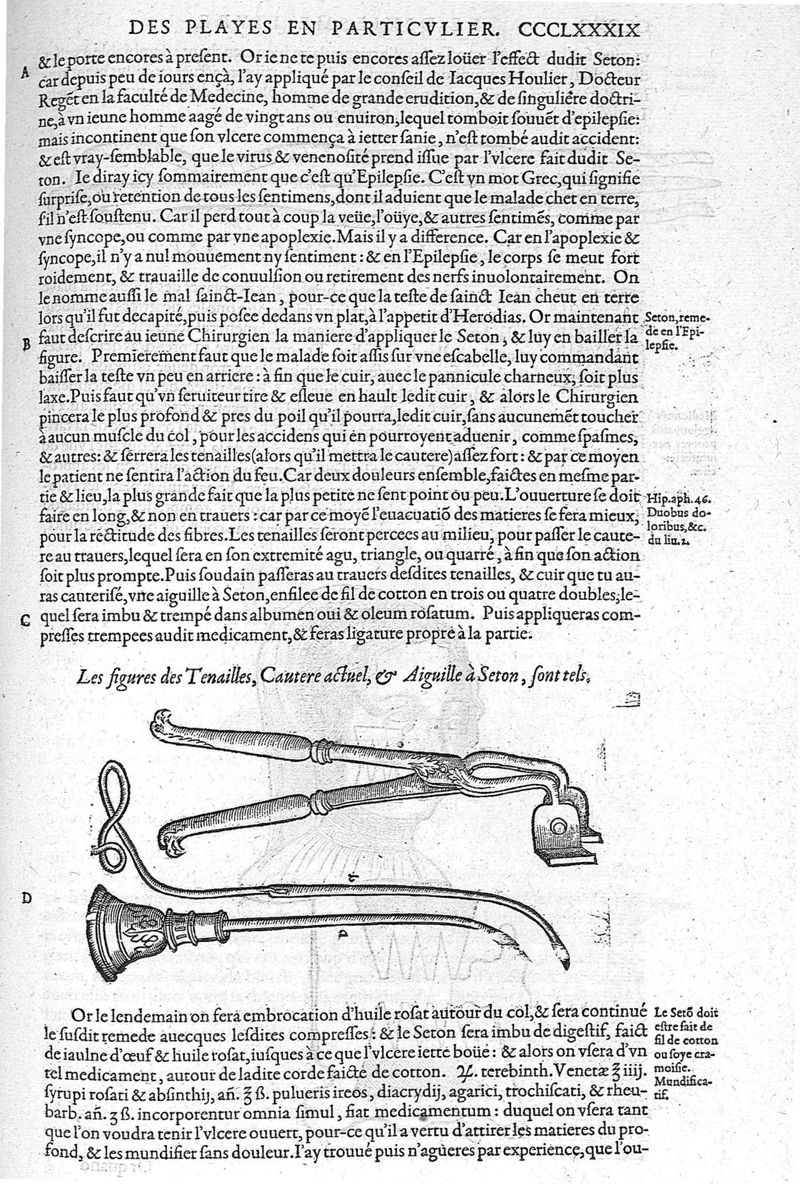 DES PLAYES EN PARTICVLIER. CCCLXXXIX
A
& le porte encores à present. Or ie ne te puis encores aſſez loüer l'effect dudit Seton:
car depuis peu de iours ençà, l'ay appliqué par le conſeil de Iacques Houlier, Docteur
Regẽt en la faculté de Medecine, homme de grande erudition, & de ſinguliere doctri-
ne, à vn ieune homme aagé de vingt ans ou enuiron, lequel tomboit ſouuẽt d'epilepſie:
mais incontinent que ſon vlcere commença à ietter ſanie, n'eſt tombé audit accident:
& eſt vray-ſemblable, que le virus & venenoſité prend iſſue par l'vlcere fait dudit Se-
ton. Ie diray icy ſommairement que c'eſt qu'Epilepſie. C'eſt vn mot Grec, qui ſignifie
ſurpriſe, ou retention de tous les ſentimens, dont il aduient que le malade chet en terre,
ſ'il n'eſt ſouſtenu. Car il perd tout à coup la veüe, l'oüye, & autres ſentimẽs, comme par
vne ſyncope, ou comme par vne apoplexie. Mais il y a difference. Car en l'apoplexie &
ſyncope, il n'y a nul mouuement ny ſentiment: & en l'Epilepſie, le corps ſe meut fort
roidement, & trauaille de conuulſion ou retirement des nerfs inuolontairement. On
le nomme auſſi le mal ſainct-Iean, pour-ce que la teſte de ſainct Iean cheut en terre
lors qu'il fut decapité, puis poſee dedans vn plat, à l'appetit d'Herodias. Or maintenant
Seton, reme-
de en l'Epi-
lepſie.
B
faut deſcrire au ieune Chirurgien la maniere d'appliquer le Seton, & luy en bailler la
figure. Premierement faut que le malade ſoit aſſis ſur vne eſcabelle, luy commandant
baiſſer la teſte vn peu en arriere: à fin que le cuir, auec le pannicule charneux, ſoit plus
laxe. Puis faut qu'vn ſeruiteur tire & eſleue en hault ledit cuir, & alors le Chirurgien
pincera le plus profond & pres du poil qu'il pourra, ledit cuir, ſans aucunemẽt toucher
à aucun muſcle du col, pour les accidens qui en pourroyent aduenir, comme ſpaſmes,
& autres: & ſerrera les tenailles (alors qu'il mettra le cautere) aſſez fort: & par ce moyen
le patient ne ſentira l'action du feu. Car deux douleurs enſemble, faictes en meſme par-
tie & lieu, la plus grande fait que la plus petite ne ſent point ou peu. L'ouuerture ſe doit
Hip. aph. 46.
Duobus do-
loribus, &c.
du liu. 2.
faire en long, & non en trauers: car par ce moyẽ l'euacuatiõ des matieres ſe fera mieux,
pour la rectitude des fibres. Les tenailles ſeront percees au milieu, pour paſſer le caute-
re au trauers, lequel ſera en ſon extremité agu, triangle, ou quarré, à fin que ſon action
ſoit plus prompte. Puis ſoudain paſſeras au trauers deſdites tenailles, & cuir que tu au-
ras cauteriſé, vne aiguille à Seton, enfilee de fil de cotton en trois ou quatre doubles, le-
C
quel ſera imbu & trempé dans albumen oui & oleum roſatum. Puis appliqueras com-
preſſes trempees audit medicament, & feras ligature propre à la partie.
Les figures des Tenailles, Cautere actuel, & Aiguille à Seton, ſont tels.
D
Or le lendemain on fera embrocation d'huile roſat autour du col, & ſera continué
le ſuſdit remede auecques leſdites compreſſes: & le Seton ſera imbu de digeſtif, faict
de iaulne d'œuf & huile roſat, iuſques à ce que l'vlcere iette boüe: & alors on vſera d'vn
tel medicament, autour de ladite corde faicte de cotton. ♃. terebinth. Venetæ ℥ iiij.
ſyrupi roſati & abſinthij, añ. ℥ ß. pulueris ireos, diacrydij, agarici, trochiſcati, & rheu-
barb. añ. ʒ ß. incorporentur omnia ſimul, fiat medicamentum: duquel on vſera tant
que l'on voudra tenir l'vlcere ouuert, pour-ce qu'il a vertu d'attirer les matieres du pro-
fond, & les mundifier ſans douleur. I'ay trouué puis n'agueres par experience, que l'ou-
Le Setõ doit
eſtre fait de
fil de cotton
ou ſoye cra-
moiſie.
Mundifica-
tif.